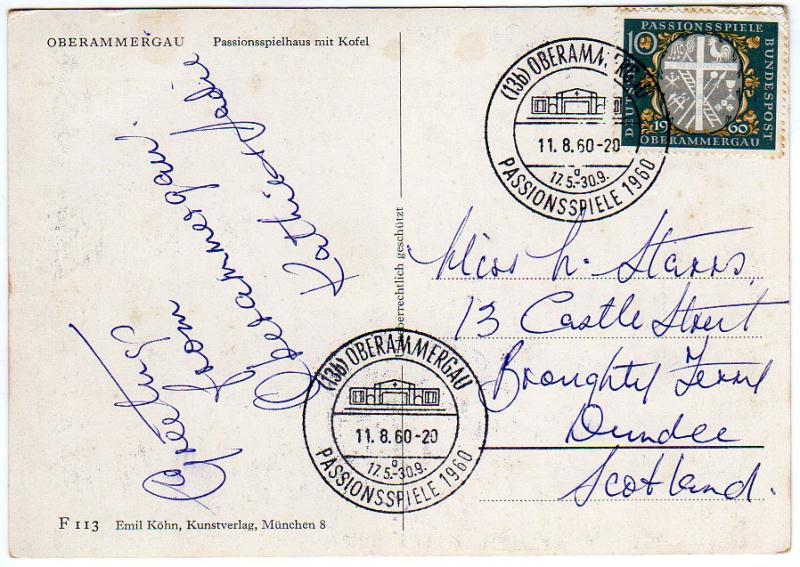 OBERAMMERGAU Passionsspielhaus mit Kofel
Greetings
from
Oberammergau.
PASSIONSSPIELE
10
DEUTSCHE
BUNDESPOST
1960
OBERAMMERGAU
(13b) OBERAMMERGAU
11.8.60-20
a
17.5.-30.9.
PASSIONSSPIELE 1960
Miss h. Starrs,
13 Castle Street
Broughty Ferry
Dundee
Scotland.
(13b) OBERAMMERGAU
11.8.60-20
a
17.5.-30.9.
PASSIONSSPIELE 1960
Urheberrechtlich geschützt
F 113 Emil Köhn, Kunstverlag, München 8